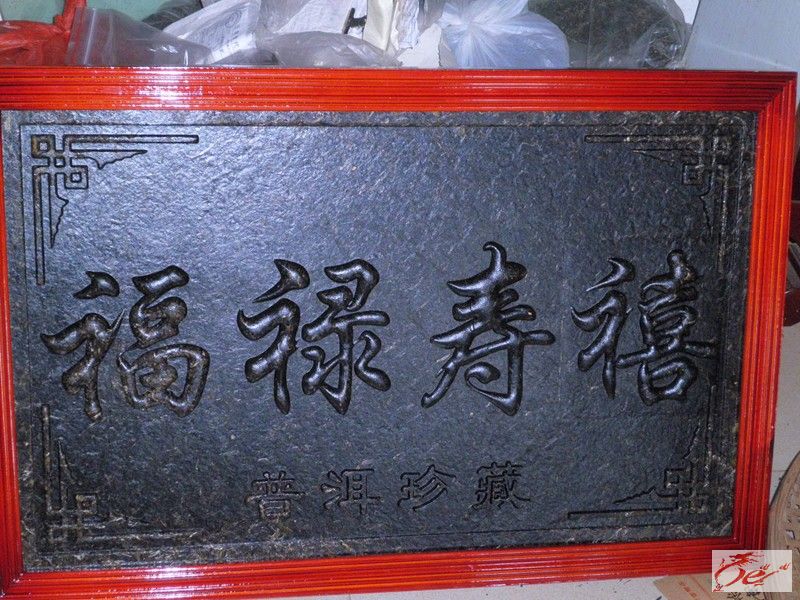 福禄寿禧
普洱珍藏